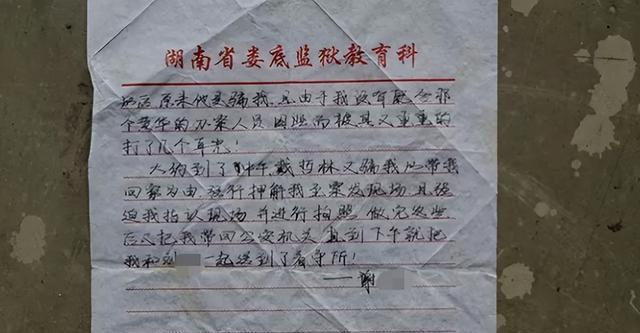 湖南省娄底监狱教育科
原来他是骗我,且由于我没有配合那
个黄华的办案人员因此而被其又重重的
打了几个耳光!
大约到了中午,戴哲林又骗我以带我
回家为由强行押解我至案发现场,且强
迫我指认现场并进行拍照,做完这些
后又把我带回公安机关,直到下午就把
我和刘 一起送到了看守所!
——谢